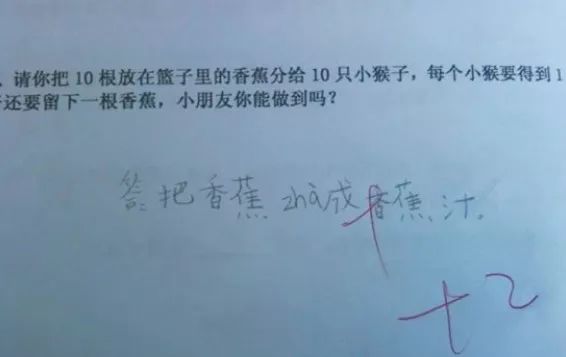 请你把 10 根放在篮子里的香蕉分给 10 只小猴子，每个小猴要得到 1
还要留下一根香蕉，小朋友你能做到吗？
答：把香蕉 zhà成香蕉汁。
+2